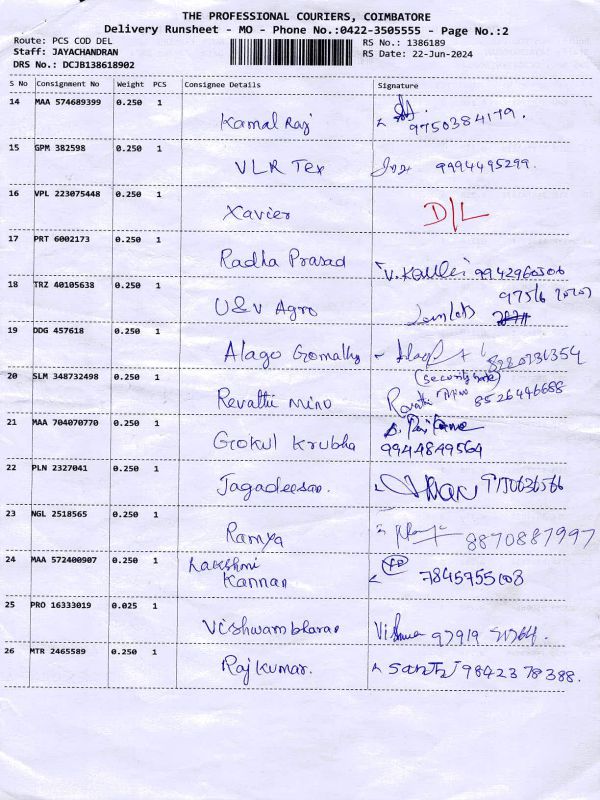 THE PROFESSIONAL COURIERS, COIMBATORE
Delivery Runsheet - MO - Phone No.:0422-3505555 - Page No.:2
Route: PCS COD DEL RS No.: 1386189
Staff: JAYACHANDRAN RS Date: 22-Jun-2024
DRS No.: DCJB138618902
S No Consignment No Weight PCS Consignee Details Signature
14 MAA 574689399 0.250 1
Kamal Raj 9750384179.
15 GPM 382598 0.250 1
VLR Tex 9994495299.
16 VPL 223075448 0.250 1
Xavier D/L
17 PRT 6002173 0.250 1
Radha Prasad 9942960506
18 TRZ 40105638 0.250 1
U&V Agro
19 DDG 457618 0.250 1
Alago
20 SLM 348732498 0.250 1
Revathi Mino Revathi Mino 8526446688
21 MAA 704070770 0.250 1
Gokul Krubha 9944849564
22 PLN 2327041 0.250 1
Jagadeesan.
23 NGL 2518565 0.250 1
Ramya 8870887997
24 MAA 572400907 0.250 1 Lakshmi
Kannan
25 PRO 16333019 0.025 1
Vishwambharan
26 MTR 2465589 0.250 1
Rajkumar. Santhi 9842378388.